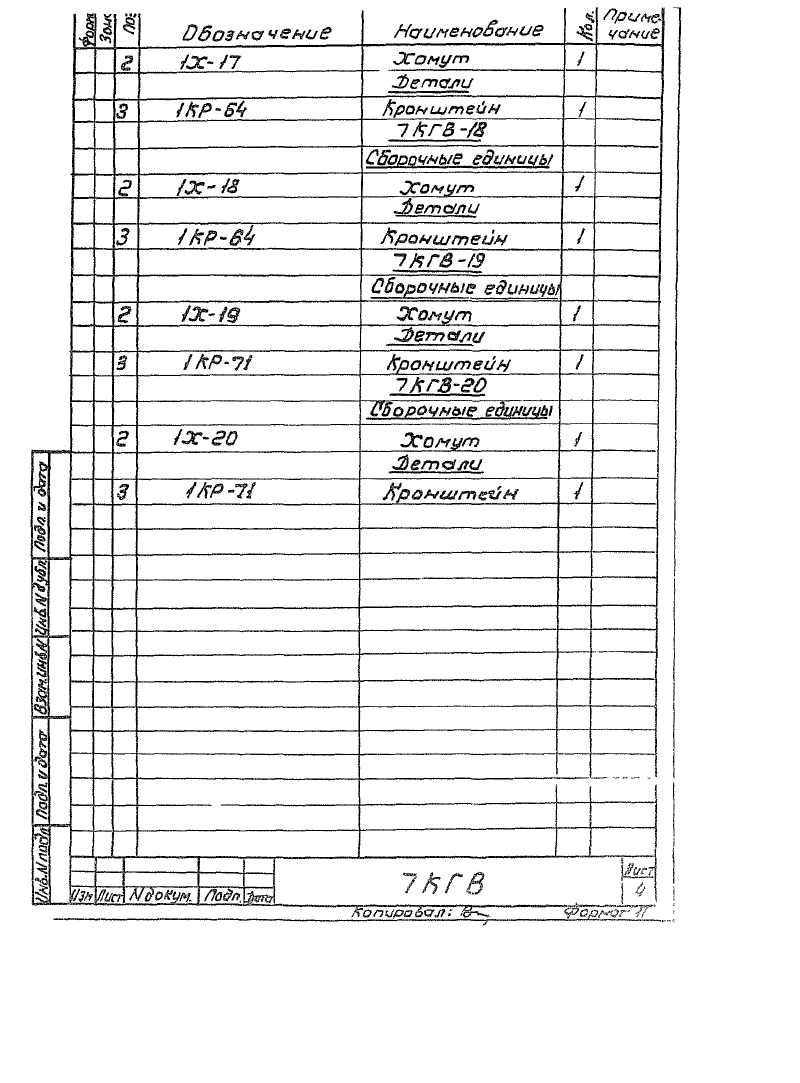 Форм
Зона
Поз.
Обозначение
Наименование
Кол.
Приме-
чание
2 1Х-17 Хомут 1
Детали
3 1КР-64 Кронштейн 1
7КГВ-18
Сборочные единицы
2 1Х-18 Хомут 1
Детали
3 1КР-64 Кронштейн 1
7КГВ-19
Сборочные единицы
2 1Х-19 Хомут 1
Детали
3 1КР-71 Кронштейн 1
7КГВ-20
Сборочные единицы
2 1Х-20 Хомут 1
Детали
3 1КР-71 Кронштейн 1
Подп. и дата
Инв.N дубл.
Взам.инв.N
Подп. и дата
Инв.N подл
Изм Лист N докум. Подп. Дата
7КГВ
Лист
4
Копировал:
Формат 11